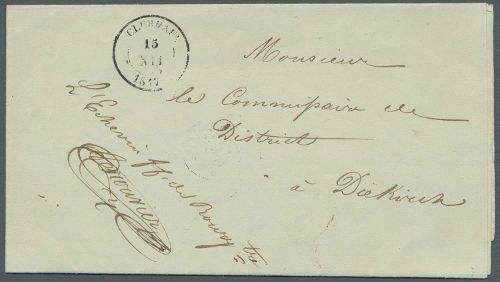 CLERVAUX
15
XII
1847
Monsieur
le Commissaire de
District
à Diekirch
L'Echevin ff de Bourg